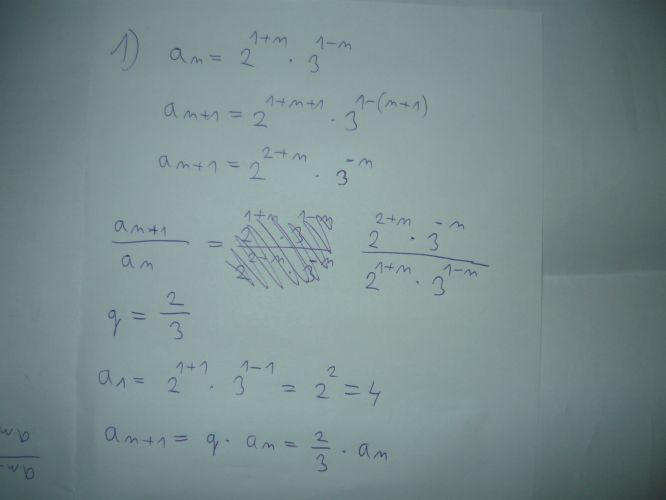 1) aₙ = 2^(1+n) · 3^(1-n)
aₙ₊₁ = 2^(1+n+1) · 3^(1-(n+1))
aₙ₊₁ = 2^(2+n) · 3^(-n)
aₙ₊₁/aₙ = (2^(2+n) · 3^(-n))/(2^(1+n) · 3^(1-n))
q = 2/3
a₁ = 2^(1+1) · 3^(1-1) = 2² = 4
aₙ₊₁ = q · aₙ = 2/3 · aₙ